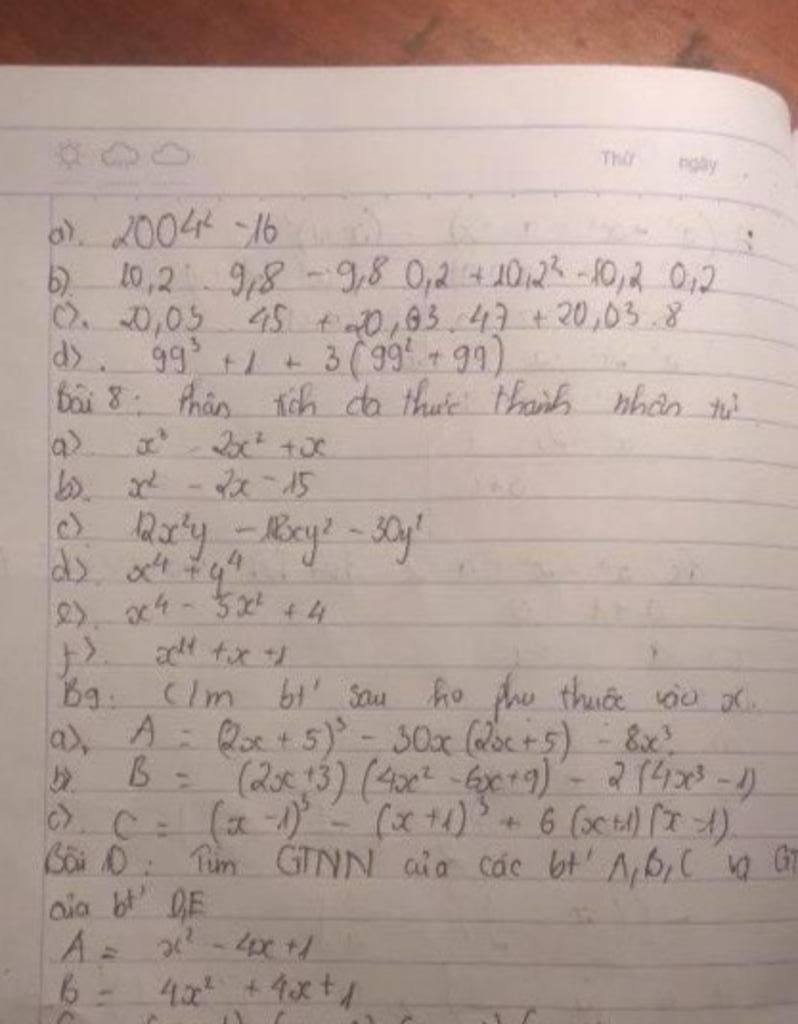 Thứ ngày
a). 2004² - 16
b) 10,2 . 9,8 - 9,8 0,2 + 10,2² - 10,2 0,2
c). 20,03 45 + 20,03 . 47 + 20,03 . 8
d). 99³ + 1 + 3(99² + 99)
Bài 8: Phân tích đa thức thành nhân tử
a) - 2x² + x
b). x² - 2x - 15
c) 12x²y - 18xy² - 30y²
d) x⁴ + y⁴
e). x⁴ - 5x² + 4
f). + x + 1
B9: C/m bt' sau ko phụ thuộc vào x.
a), A = (2x + 5)³ - 30x (2x + 5) - 8x³
b) B = (2x + 3) (4x² - 6x + 9) - 2 (4x³ - 1)
c). C = (x - 1)³ - (x + 1)³ + 6 (x + 1) (x - 1)
Bài 10: Tìm GTNN của các bt' A, B, C và
của bt' D,E
A = x² - 4x + 1
B = 4x² + 4x + 1